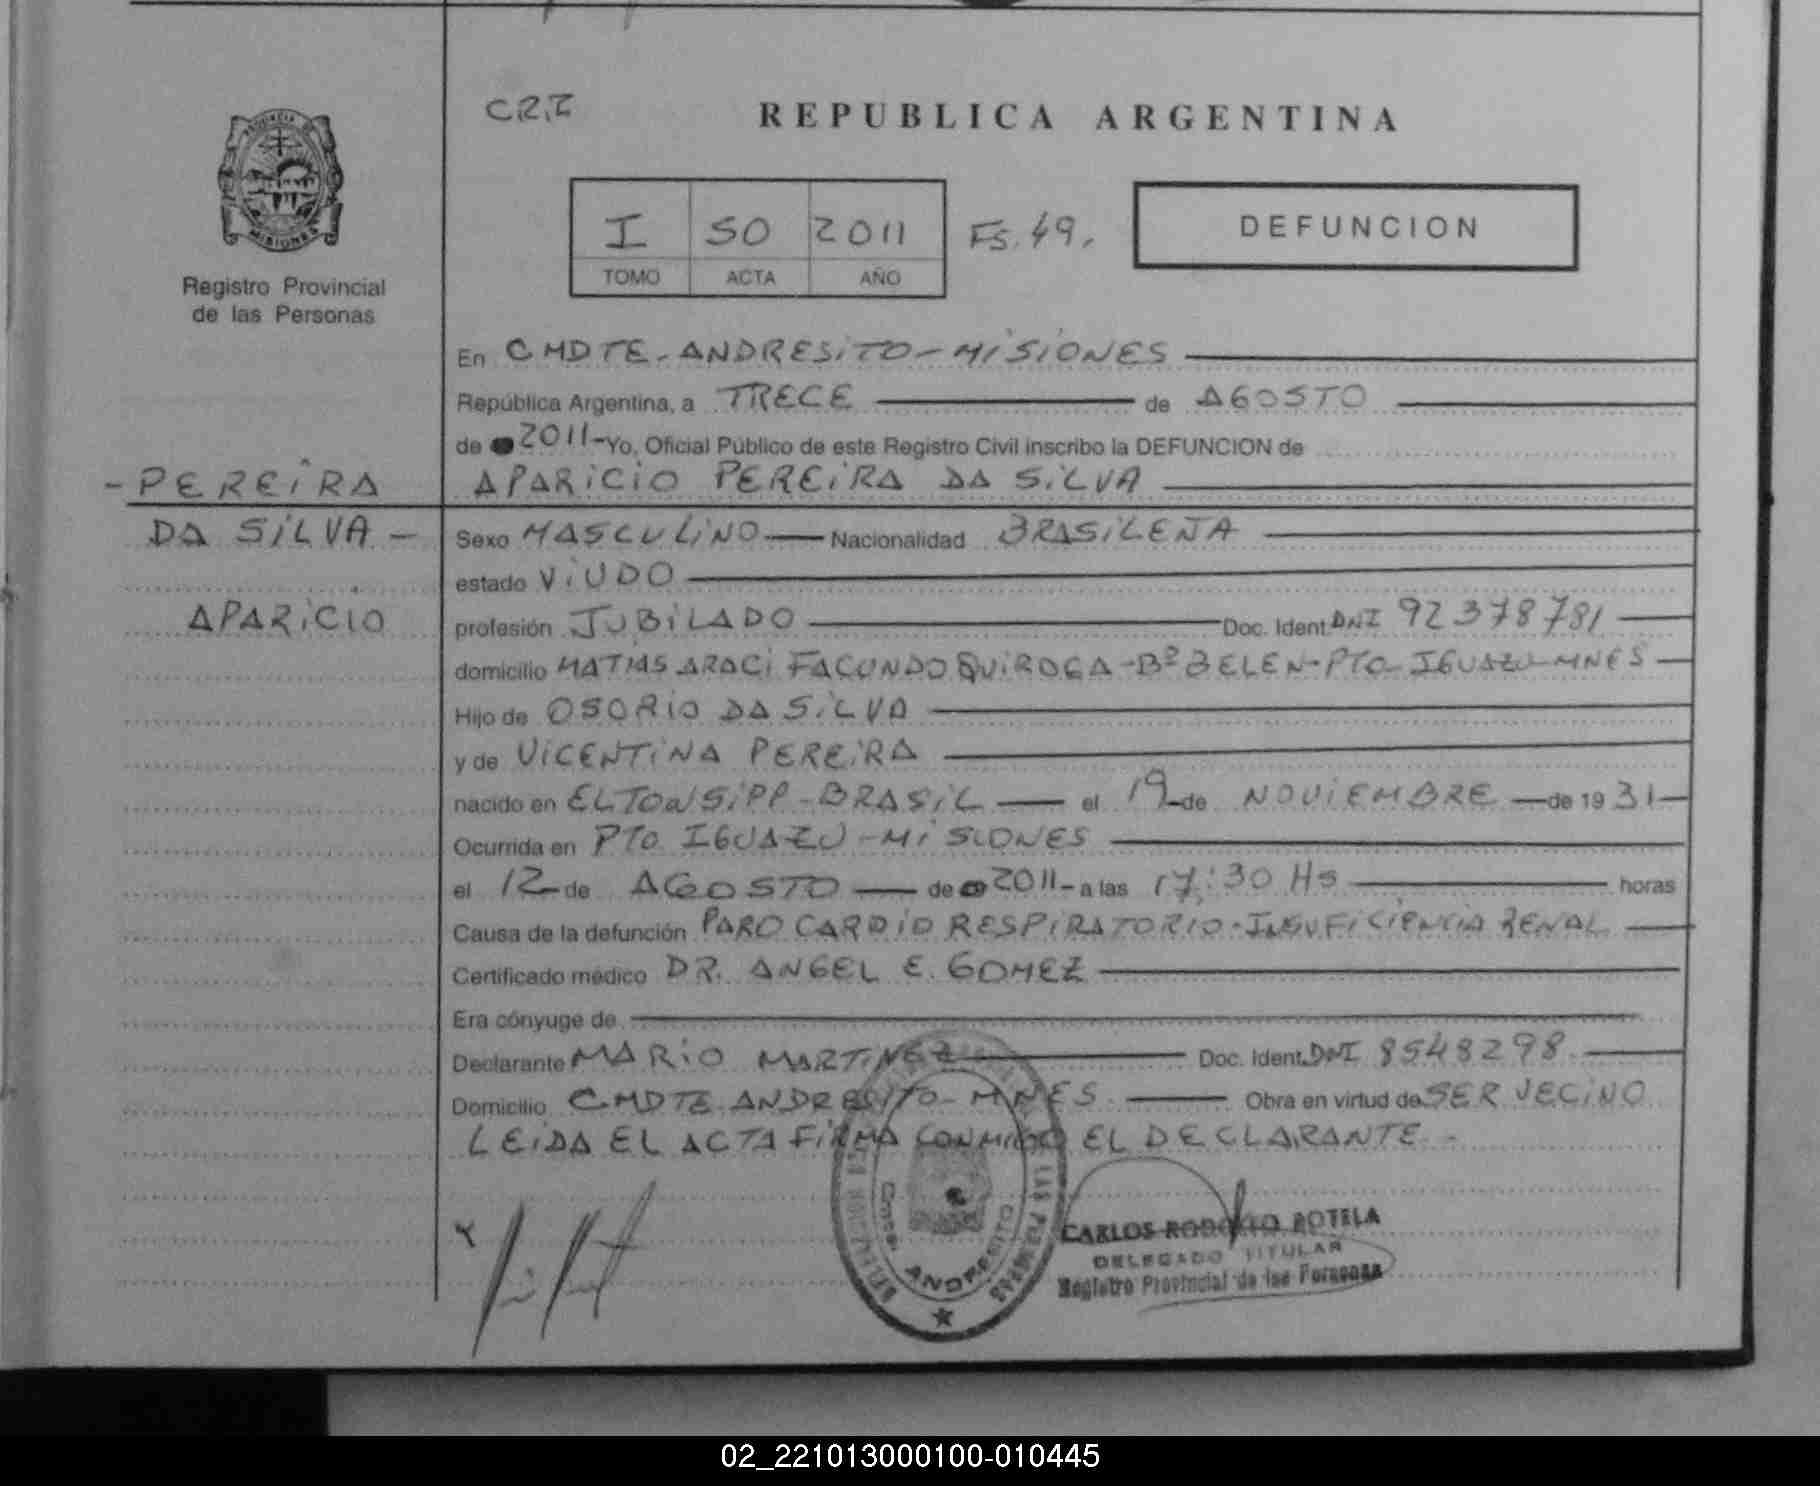 CR.I
REPUBLICA ARGENTINA
PROVINCIA DE
MISIONES
Registro Provincial
de las Personas
I 50 2011 Fs. 49.
TOMO ACTA AÑO
DEFUNCION
En CMDTE. ANDRESITO - MISIONES
República Argentina, a TRECE de AGOSTO
de 2011 - Yo, Oficial Público de este Registro Civil inscribo la DEFUNCION de
- PEREIRA
APARICIO PEREIRA DA SILVA
DA SILVA -
Sexo MASCULINO Nacionalidad BRASILEÑA
estado VIUDO
APARICIO
profesión JUBILADO Doc. Ident. DNI 92378781
domicilio MATIAS ARACI FACUNDO QUIROGA - Bº BELEN - PTO IGUAZU - MNES
Hijo de OSORIO DA SILVA
y de VICENTINA PEREIRA
nacido en ELTONSIPP - BRASIL el 19 de NOVIEMBRE de 1931
Ocurrida en PTO IGUAZU - MISIONES
el 12 de AGOSTO de 2011 - a las 17:30 Hs horas
Causa de la defunción PARO CARDIO RESPIRATORIO - INSUFICIENCIA RENAL
Certificado médico DR. ANGEL E. GOMEZ
Era cónyuge de
Declarante MARIO MARTINEZ Doc. Ident. DNI 8548298
Domicilio CMDTE ANDRESITO - MNES Obra en virtud de SER VECINO
LEIDA EL ACTA FIRMA CONMIGO EL DECLARANTE -
LAS PERSONAS
ANDRESITO
CARLOS RODOLFO ROTELA
DELEGADO TITULAR
Registro Provincial de las Personas
02_221013000100-010445